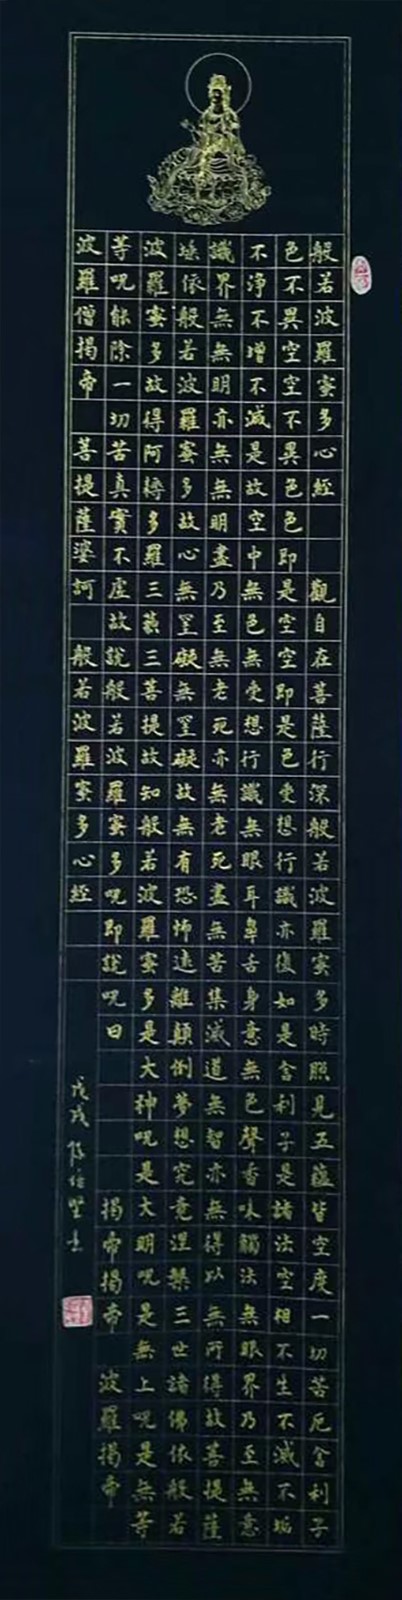 般若波羅蜜多心經　觀自在菩薩行深般若波羅蜜多時照見五蘊皆空度一切苦厄舍利子
色不異空空不異色色即是空空即是色受想行識亦復如是舍利子是諸法空相不生不滅不垢
不淨不增不減是故空中無色無受想行識無眼耳鼻舌身意無色聲香味觸法無眼界乃至無意
識界無無明亦無無明盡乃至無老死亦無老死盡無苦集滅道無智亦無得以無所得故菩提薩
埵依般若波羅蜜多故心無罣礙無罣礙故無有恐怖遠離顛倒夢想究竟涅槃三世諸佛依般若
波羅蜜多故得阿耨多羅三藐三菩提故知般若波羅蜜多是大神呪是大明呪是無上呪是無等
等呪能除一切苦真實不虛故說般若波羅蜜多呪即說呪曰　揭帝揭帝　波羅揭帝
波羅僧揭帝　菩提薩婆訶　般若波羅蜜多心經
戊戌